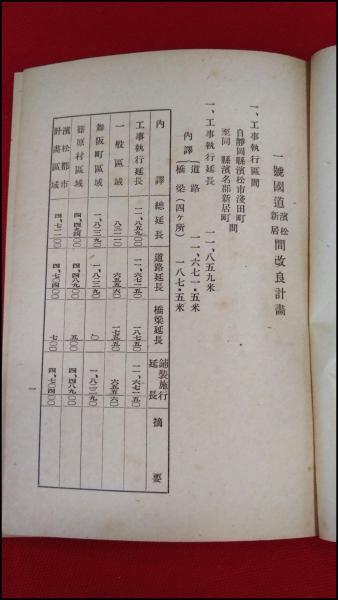 一號國道濱松新居間改良計畫
一、工事執行區間
自靜岡縣濱松市淺田町
至同 縣濱名郡新居町間
一、工事執行延長 一一、八五九米
內譯 道路 一一、六七一・五米
橋梁(四ケ所) 一八七・五米
內譯 總延長 道路延長 橋梁延長 鋪裝施行延長 摘要
工事執行延長 一一、八五九〇〇 一一、六七一五〇 一八七五〇 一一、六七一五〇
一般區域 八三一一〇 六五五六〇 一七五五〇 六五五六〇
舞阪町區域 一、八二二九〇 一、八二二九〇 〇 一、八二二九〇
篠原村區域 四、四九四〇〇 四、四八九〇〇 五〇〇 四、四八九〇〇
濱松都市計畫區域 四、七一一〇〇 四、七〇四〇〇 七〇〇 四、七〇四〇〇
一